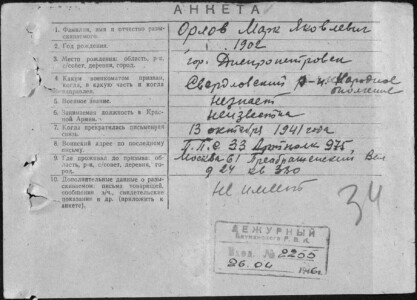 АНКЕТА
1. Фамилия, имя и отчество разыскиваемого. Орлов Марк Яковлевич
2. Год рождения. 1902
3. Место рождения: область, р-н, с/совет, деревня, город. гор. Днепропетровск
4. Каким военкоматом призван, когда, в какую часть и когда направлен. Свердловский р-н. Народное ополчение
5. Военное звание. Незнает
6. Занимаемая должность в Красной Армии. неизвестна
7. Когда прекратилась письменная связь. 13 октября 1941 года
8. Воинский адрес по последнему письму. П.П.С. 33 975
9. Где проживал до призыва: область, р-н, с/совет, деревня, город. Москва 61 Преображенский Вал д 24 кв 330
10. Дополнительные данные о разыскиваемом: письма товарищей, сообщения в/ч, свидетельские показания и др. (приложить к анкете). не имеет
34
ДЕЖУРНЫЙ
Р. В. К.
Вход. № 2200
26.04 1946 г.